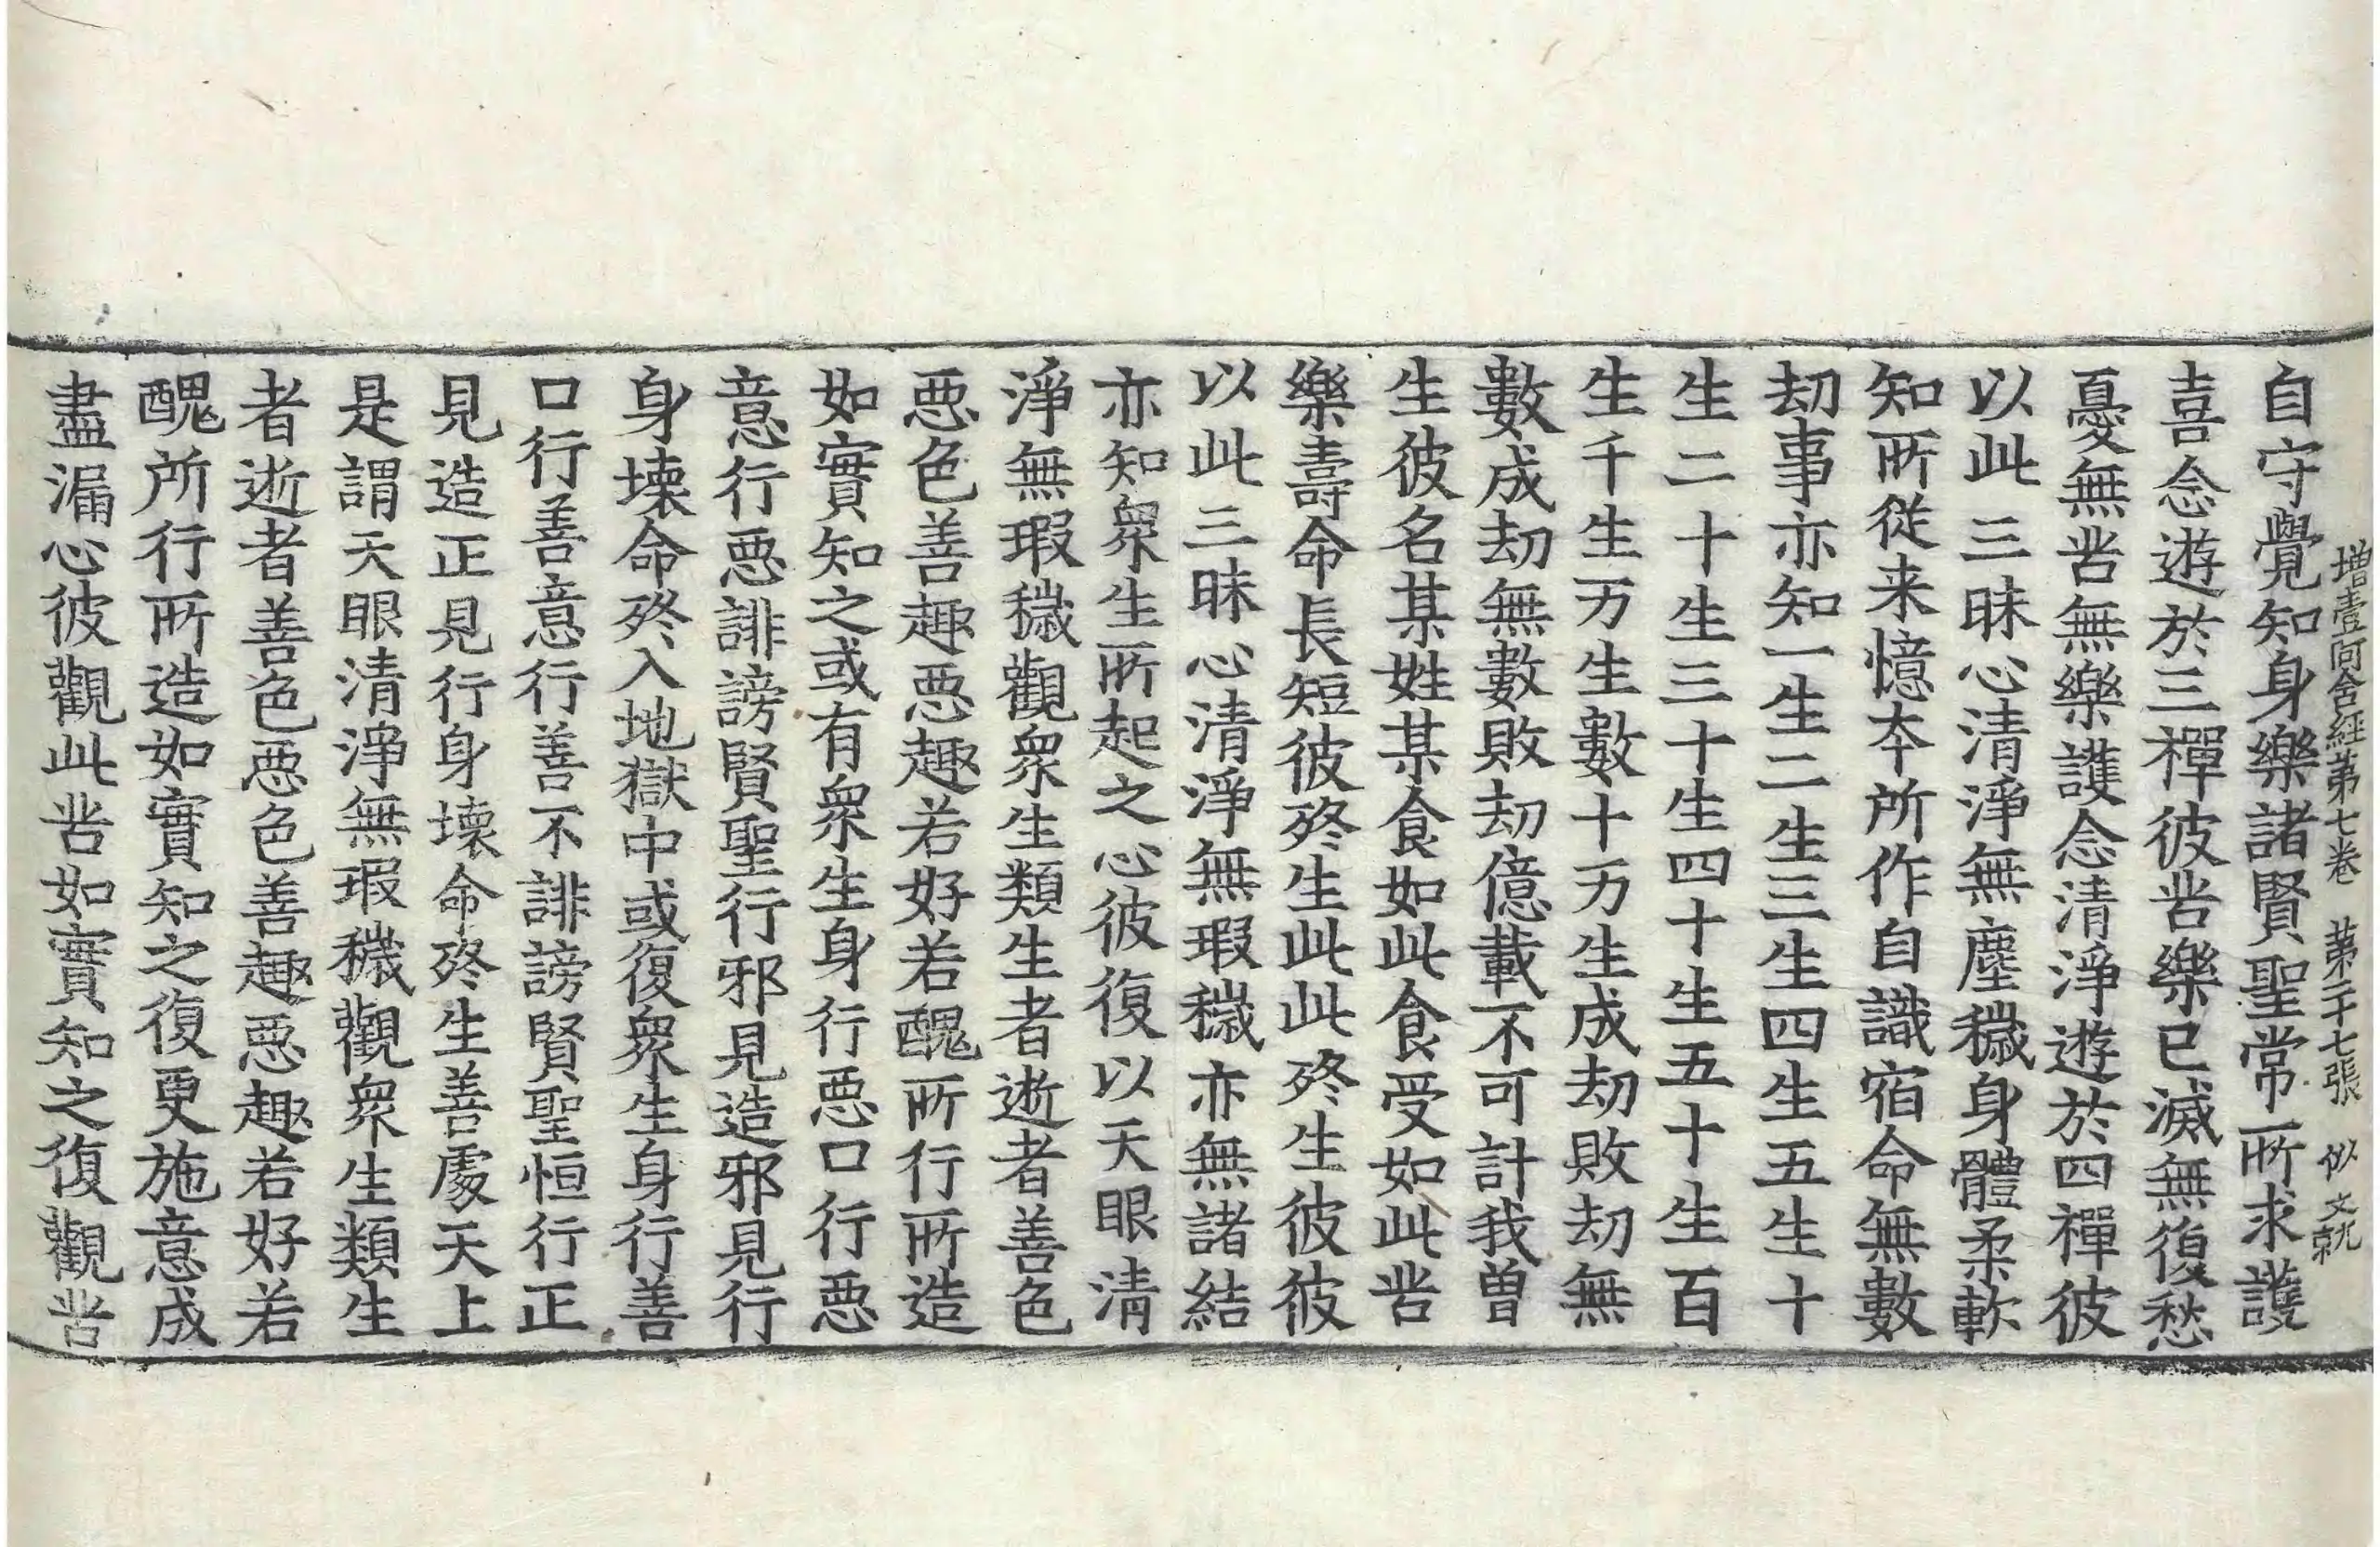 增壹阿含經第七卷 第二十七張 似
自守覺知身樂諸賢聖常所求護
喜念遊於三禪彼苦樂已滅無復愁
憂無苦無樂護念清淨遊於四禪彼
以此三昧心清淨無塵穢身體柔軟
知所從来憶本所作自識宿命無數
劫事亦知一生二生三生四生五生十
生二十生三十生四十生五十生百
生千生万生數十万生成劫敗劫無
數成劫無數敗劫億載不可計我曾
生彼名某姓某食如此食受如此苦
樂壽命長短彼終生此此終生彼彼
以此三昧心清淨無瑕穢亦無諸結
亦知衆生所起之心彼復以天眼清
淨無瑕穢觀衆生類生者逝者善色
惡色善趣惡趣若好若醜所行所造
如實知之或有衆生身行惡口行惡
意行惡誹謗賢聖行邪見造邪見行
身壞命終入地獄中或復衆生身行善
口行善意行善不誹謗賢聖恒行正
見造正見行身壞命終生善處天上
是謂天眼清淨無瑕穢觀衆生類生
者逝者善色惡色善趣惡趣若好若
醜所行所造如實知之復更施意成
盡漏心彼觀此苦如實知之復觀苦